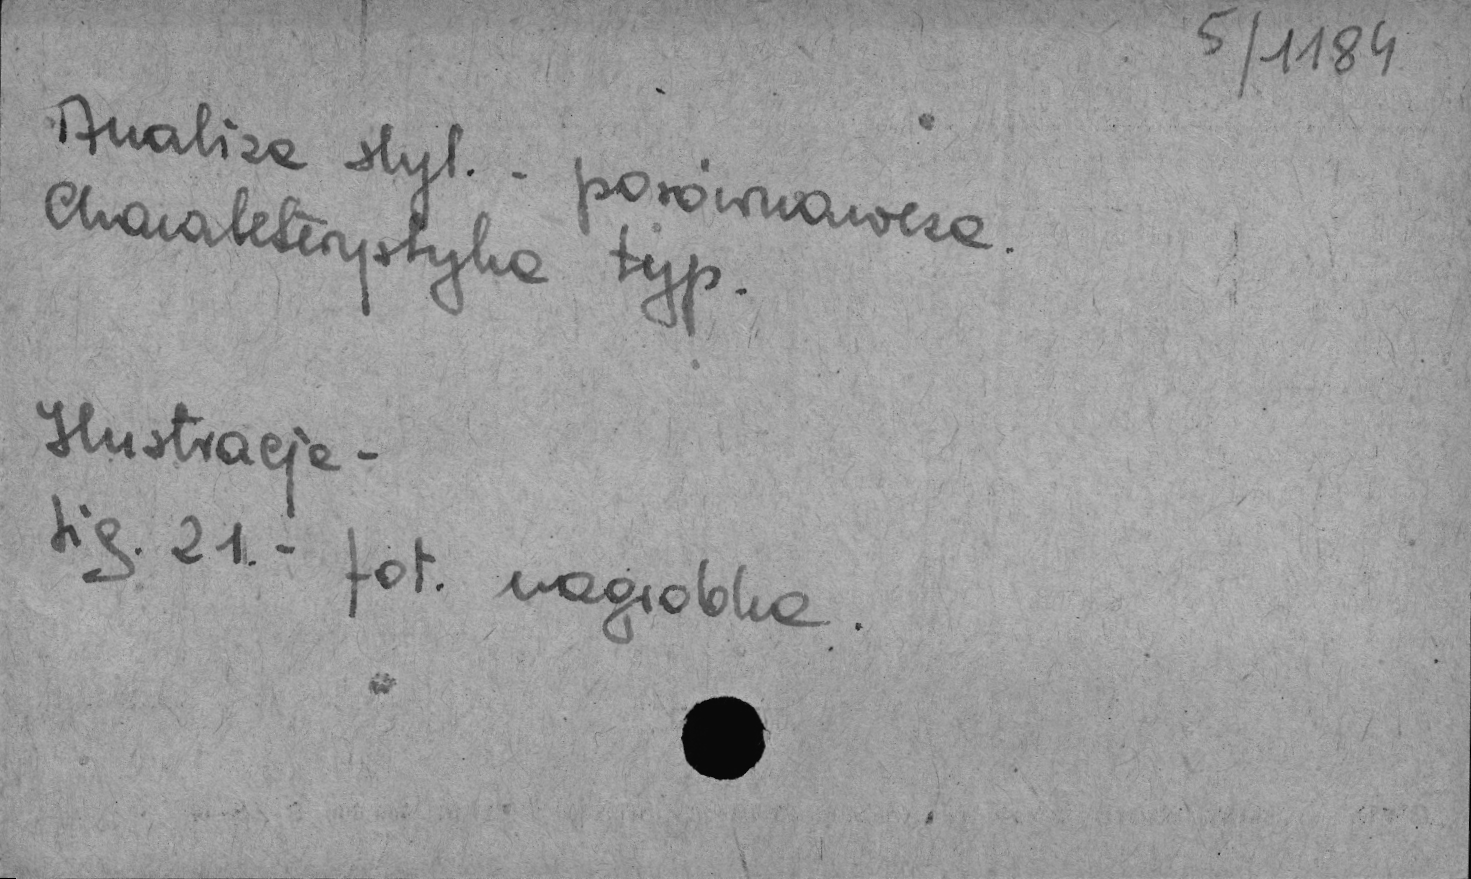 5/1184
Analiza styl. - porównawcza.
Charakterystyka typ.
Ilustracje -
fig. 21. - fot. nagrobka.